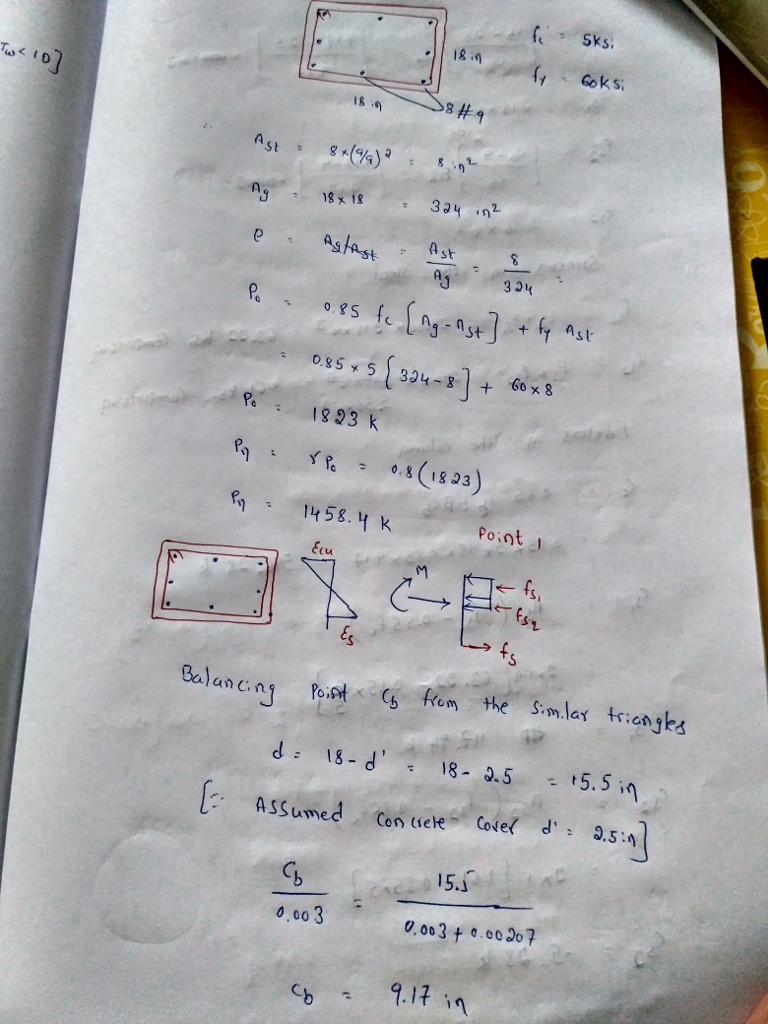 Tω < 10]
fc' = 5ksi
18 in
fy = 60ksi
18 in
8 # 9
∴
Ast = 8×(9/9)² = 8 in²
Ag = 18 × 18 = 324 in²
ρ = Ag/Ast = Ast/Ag = 8/324 =
P₀ = 0.85 fc [Ag - Ast] + fy Ast
= 0.85 × 5 [324 - 8] + 60 × 8
P₀ = 1823 k
Pη = γP₀ = 0.8(1823)
Pη = 1458.4 k
Point 1
Ecu
M
fs₁
fs₂
Es
fs
Balancing Point Cb from the similar triangles
d = 18 - d' = 18 - 2.5 = 15.5 in
[∵ Assumed Concrete Cover d' = 2.5in]
Cb/0.003 = 15.5/0.003 + 0.00207
Cb = 9.17 in